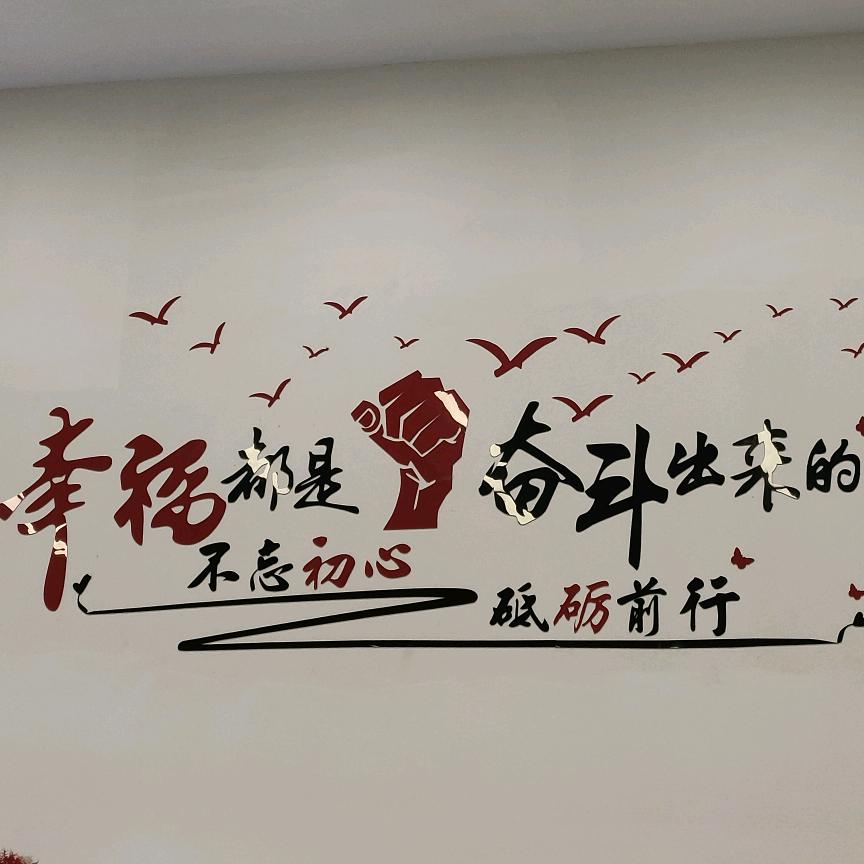 幸福都是奋斗出来的
不忘初心
砥砺前行